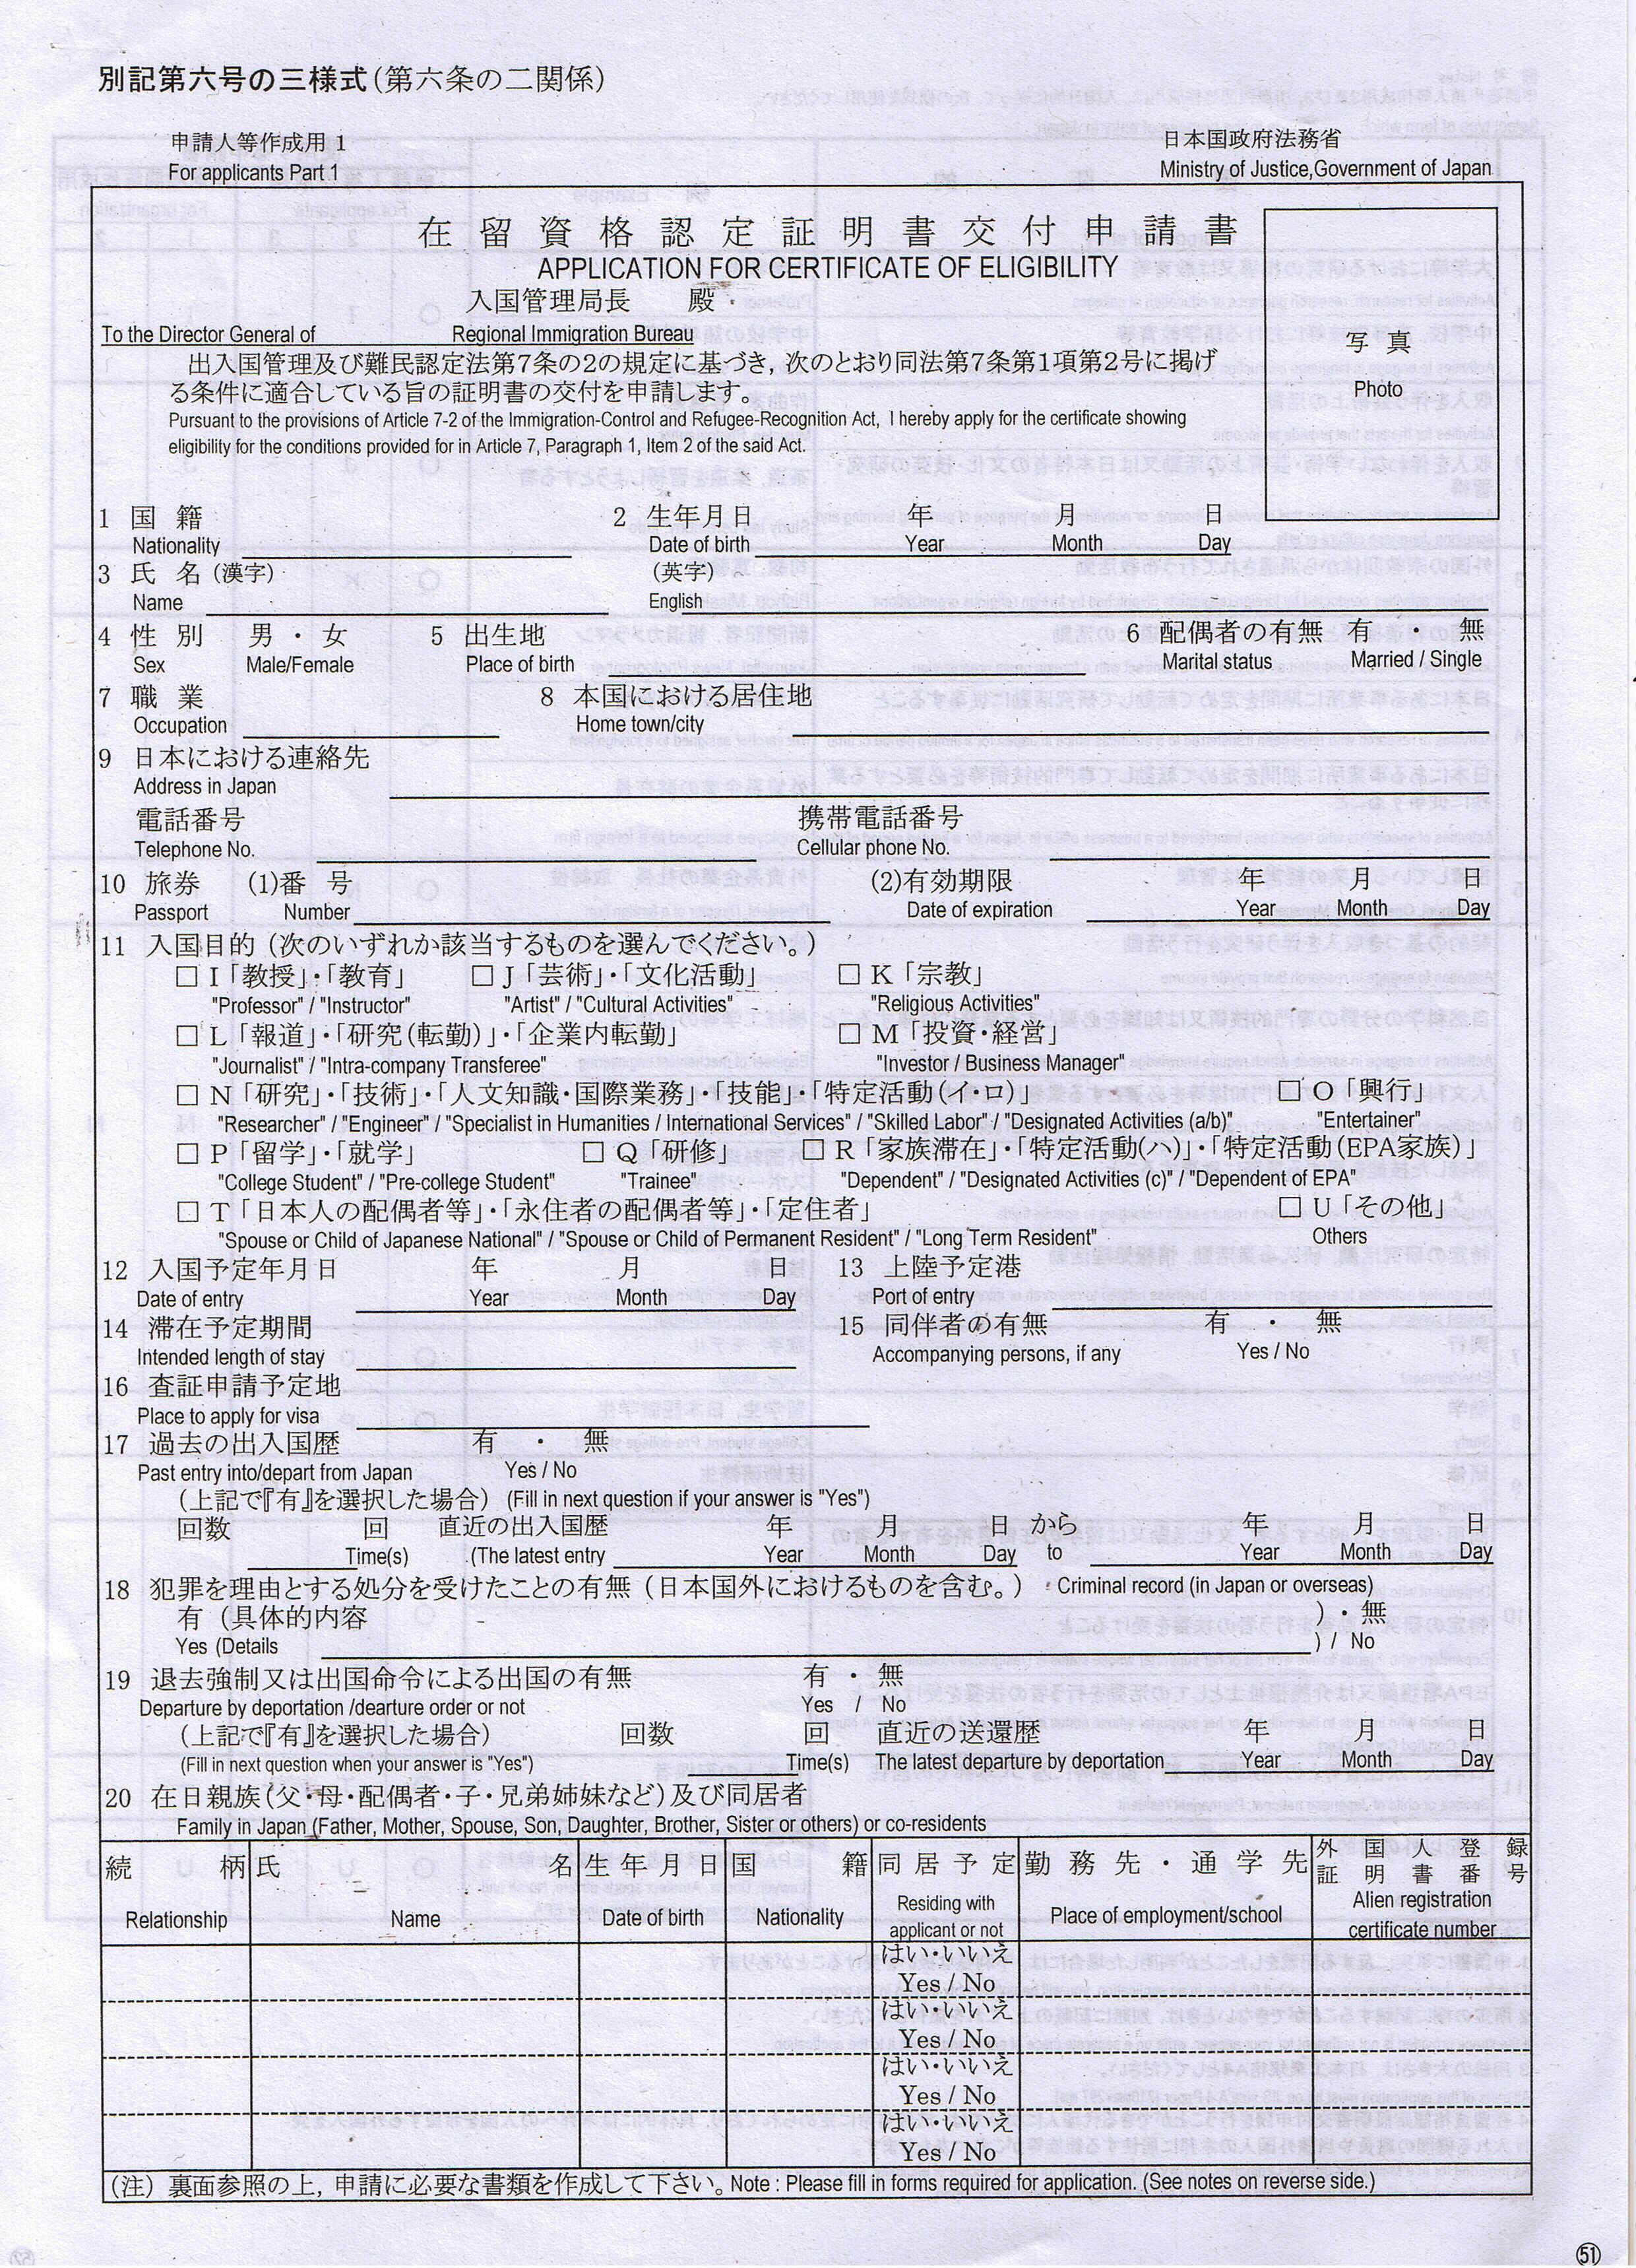 別記第六号の三様式(第六条の二関係)
申請人等作成用 1
日本国政府法務省
For applicants Part 1
Ministry of Justice,Government of Japan
在留資格認定証明書交付申請書
APPLICATION FOR CERTIFICATE OF ELIGIBILITY
入国管理局長 殿
To the Director General of Regional Immigration Bureau
出入国管理及び難民認定法第7条の2の規定に基づき, 次のとおり同法第7条第1項第2号に掲げ
る条件に適合している旨の証明書の交付を申請します。
Pursuant to the provisions of Article 7-2 of the Immigration-Control and Refugee-Recognition Act, I hereby apply for the certificate showing
eligibility for the conditions provided for in Article 7, Paragraph 1, Item 2 of the said Act.
写 真
Photo
1 国 籍 2 生年月日 年 月 日
Nationality Date of birth Year Month Day
3 氏 名 (漢字) (英字)
Name English
4 性 別 男 ・ 女 5 出生地 6 配偶者の有無 有 ・ 無
Sex Male/Female Place of birth Marital status Married / Single
7 職 業 8 本国における居住地
Occupation Home town/city
9 日本における連絡先
Address in Japan
電話番号 携帯電話番号
Telephone No. Cellular phone No.
10 旅券 (1)番 号 (2)有効期限 年 月 日
Passport Number Date of expiration Year Month Day
11 入国目的 (次のいずれか該当するものを選んでください。)
□ I「教授」・「教育」 □ J「芸術」・「文化活動」 □ K「宗教」
"Professor" / "Instructor" "Artist" / "Cultural Activities" "Religious Activities"
□ L「報道」・「研究(転勤)」・「企業内転勤」 □ M「投資・経営」
"Journalist" / "Intra-company Transferee" "Investor / Business Manager"
□ N「研究」・「技術」・「人文知識・国際業務」・「技能」・「特定活動(イ・ロ)」 □ O「興行」
"Researcher" / "Engineer" / "Specialist in Humanities / International Services" / "Skilled Labor" / "Designated Activities (a/b)" "Entertainer"
□ P「留学」・「就学」 □ Q「研修」 □ R「家族滞在」・「特定活動(ハ)」・「特定活動(EPA家族)」
"College Student" / "Pre-college Student" "Trainee" "Dependent" / "Designated Activities (c)" / "Dependent of EPA"
□ T「日本人の配偶者等」・「永住者の配偶者等」・「定住者」 □ U「その他」
"Spouse or Child of Japanese National" / "Spouse or Child of Permanent Resident" / "Long Term Resident" Others
12 入国予定年月日 年 月 日 13 上陸予定港
Date of entry Year Month Day Port of entry
14 滞在予定期間 15 同伴者の有無 有 ・ 無
Intended length of stay Accompanying persons, if any Yes / No
16 査証申請予定地
Place to apply for visa
17 過去の出入国歴 有 ・ 無
Past entry into/depart from Japan Yes / No
(上記で『有』を選択した場合) (Fill in next question if your answer is "Yes")
回数 回 直近の出入国歴 年 月 日 から 年 月 日
Time(s) (The latest entry Year Month Day to Year Month Day
18 犯罪を理由とする処分を受けたことの有無 (日本国外におけるものを含む。) Criminal record (in Japan or overseas)
有 (具体的内容 ) ・ 無
Yes (Details ) / No
19 退去強制又は出国命令による出国の有無 有 ・ 無
Departure by deportation /dearture order or not Yes / No
(上記で『有』を選択した場合) 回数 回 直近の送還歴 年 月 日
(Fill in next question when your answer is "Yes") Time(s) The latest departure by deportation Year Month Day
20 在日親族(父・母・配偶者・子・兄弟姉妹など)及び同居者
Family in Japan (Father, Mother, Spouse, Son, Daughter, Brother, Sister or others) or co-residents
続 柄 氏 名 生年月日 国 籍 同居予定 勤務先・通学先 外国人登録証明書番号
Relationship Name Date of birth Nationality Residing with applicant or not Place of employment/school Alien registration certificate number
はい・いいえ
Yes / No
はい・いいえ
Yes / No
はい・いいえ
Yes / No
はい・いいえ
Yes / No
(注) 裏面参照の上, 申請に必要な書類を作成して下さい。 Note : Please fill in forms required for application. (See notes on reverse side.)
51